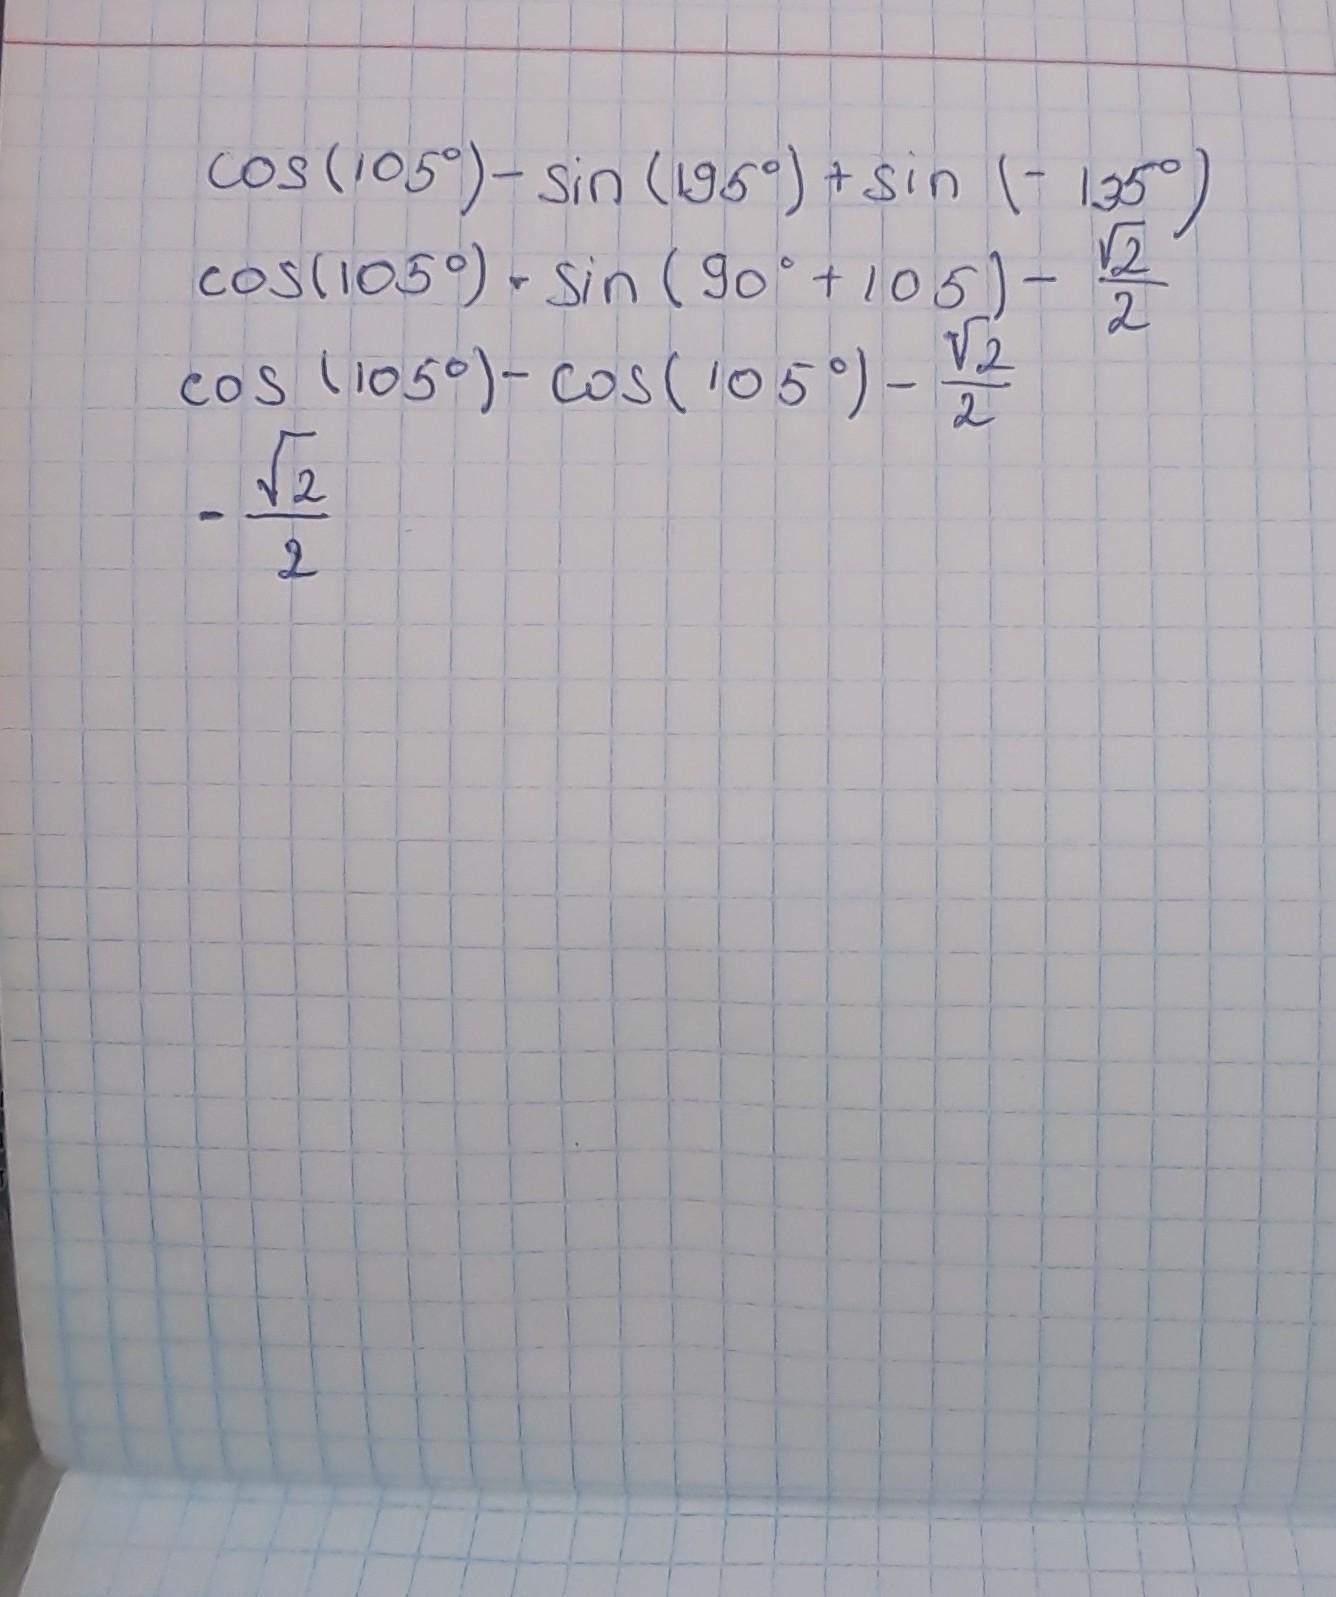 cos(105°) - sin(195°) + sin (- 135°)
cos(105°) - sin(90° + 105) - √2/2
cos (105°) - cos(105°) - √2/2
- √2/2